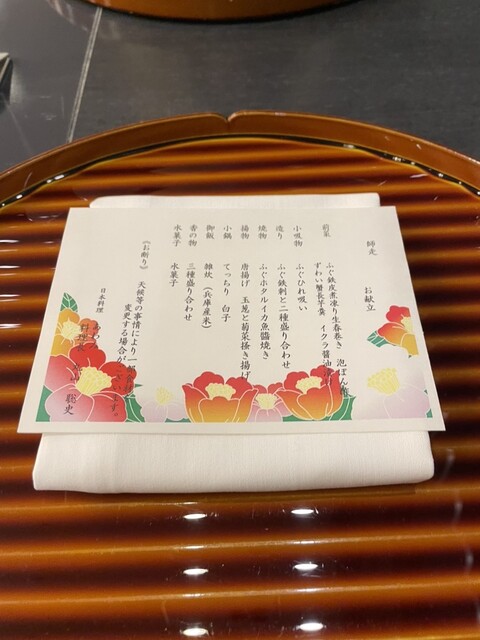 師走 お献立
前菜 ふぐ鉄皮煮凍り生春巻き 泡ぽん酢
ずわい蟹長芋羹 イクラ醤油
小吸物 ふぐひれ吸い
造り ふぐ鉄刺と二種盛り合わせ
焼物 ふぐホタルイカ魚醬焼き
揚物 唐揚げ 玉葱と菊菜掻き揚げ
小鍋 てっちり 白子
御飯 雑炊(兵庫産米)
香の物 三種盛り合わせ
水菓子 水菓子
《お断り》 天候等の事情により一部
変更する場合がございます。
日本料理
料理長 聡史